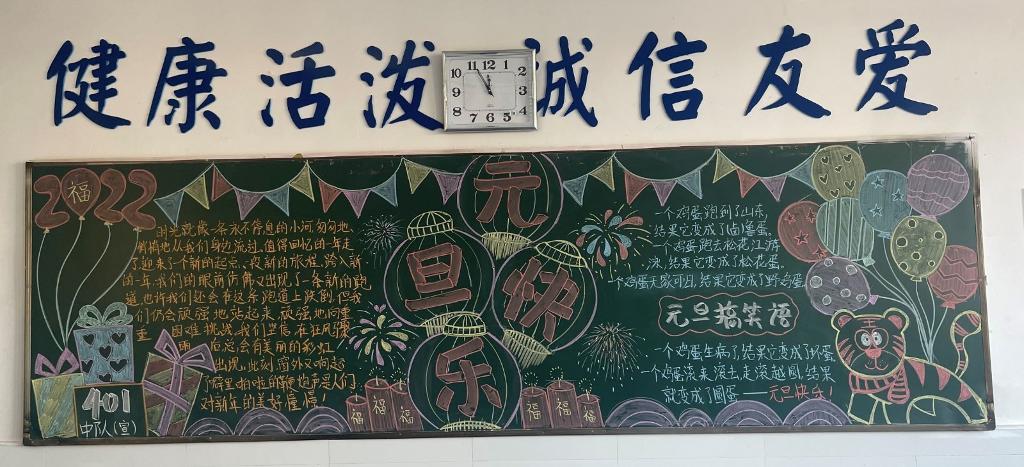 健康活泼 诚信友爱
11 12 1
10 2
9 3
8 4
7 6 5
2022
福
元
旦
快
乐
时光就像一条永不停息的小河匆匆地
悄悄地从我们身边流过。值得回忆的一年走
了迎来了个新的起点、我新的旅程。跨入新
的一年,我们的眼前仿佛又出现了一条新的跑
道,也许我们还会在这条跑道上跌倒,但我
们仍会顽强地站起来,顽强地向重
重困难挑战我们坚信在狂风骤
雨后总会有美丽的彩虹
出现。此刻窗外又响起
了噼里啪啦的鞭炮声是人们
对新年的美好憧憬!
401
中队(宣)
福
福
福
福
福
一个鸡蛋跑到了山东,
结果它变成了卤蛋。
一个鸡蛋跑去松花江游
泳,结果它变成了松花蛋。
一个鸡蛋无家可归,结果它变成了野鸡蛋
元旦搞笑语
一个鸡蛋生病了,结果它变成了坏蛋
一个鸡蛋滚来滚去,走滚越圆,结果
就变成了圆蛋——元旦快乐!